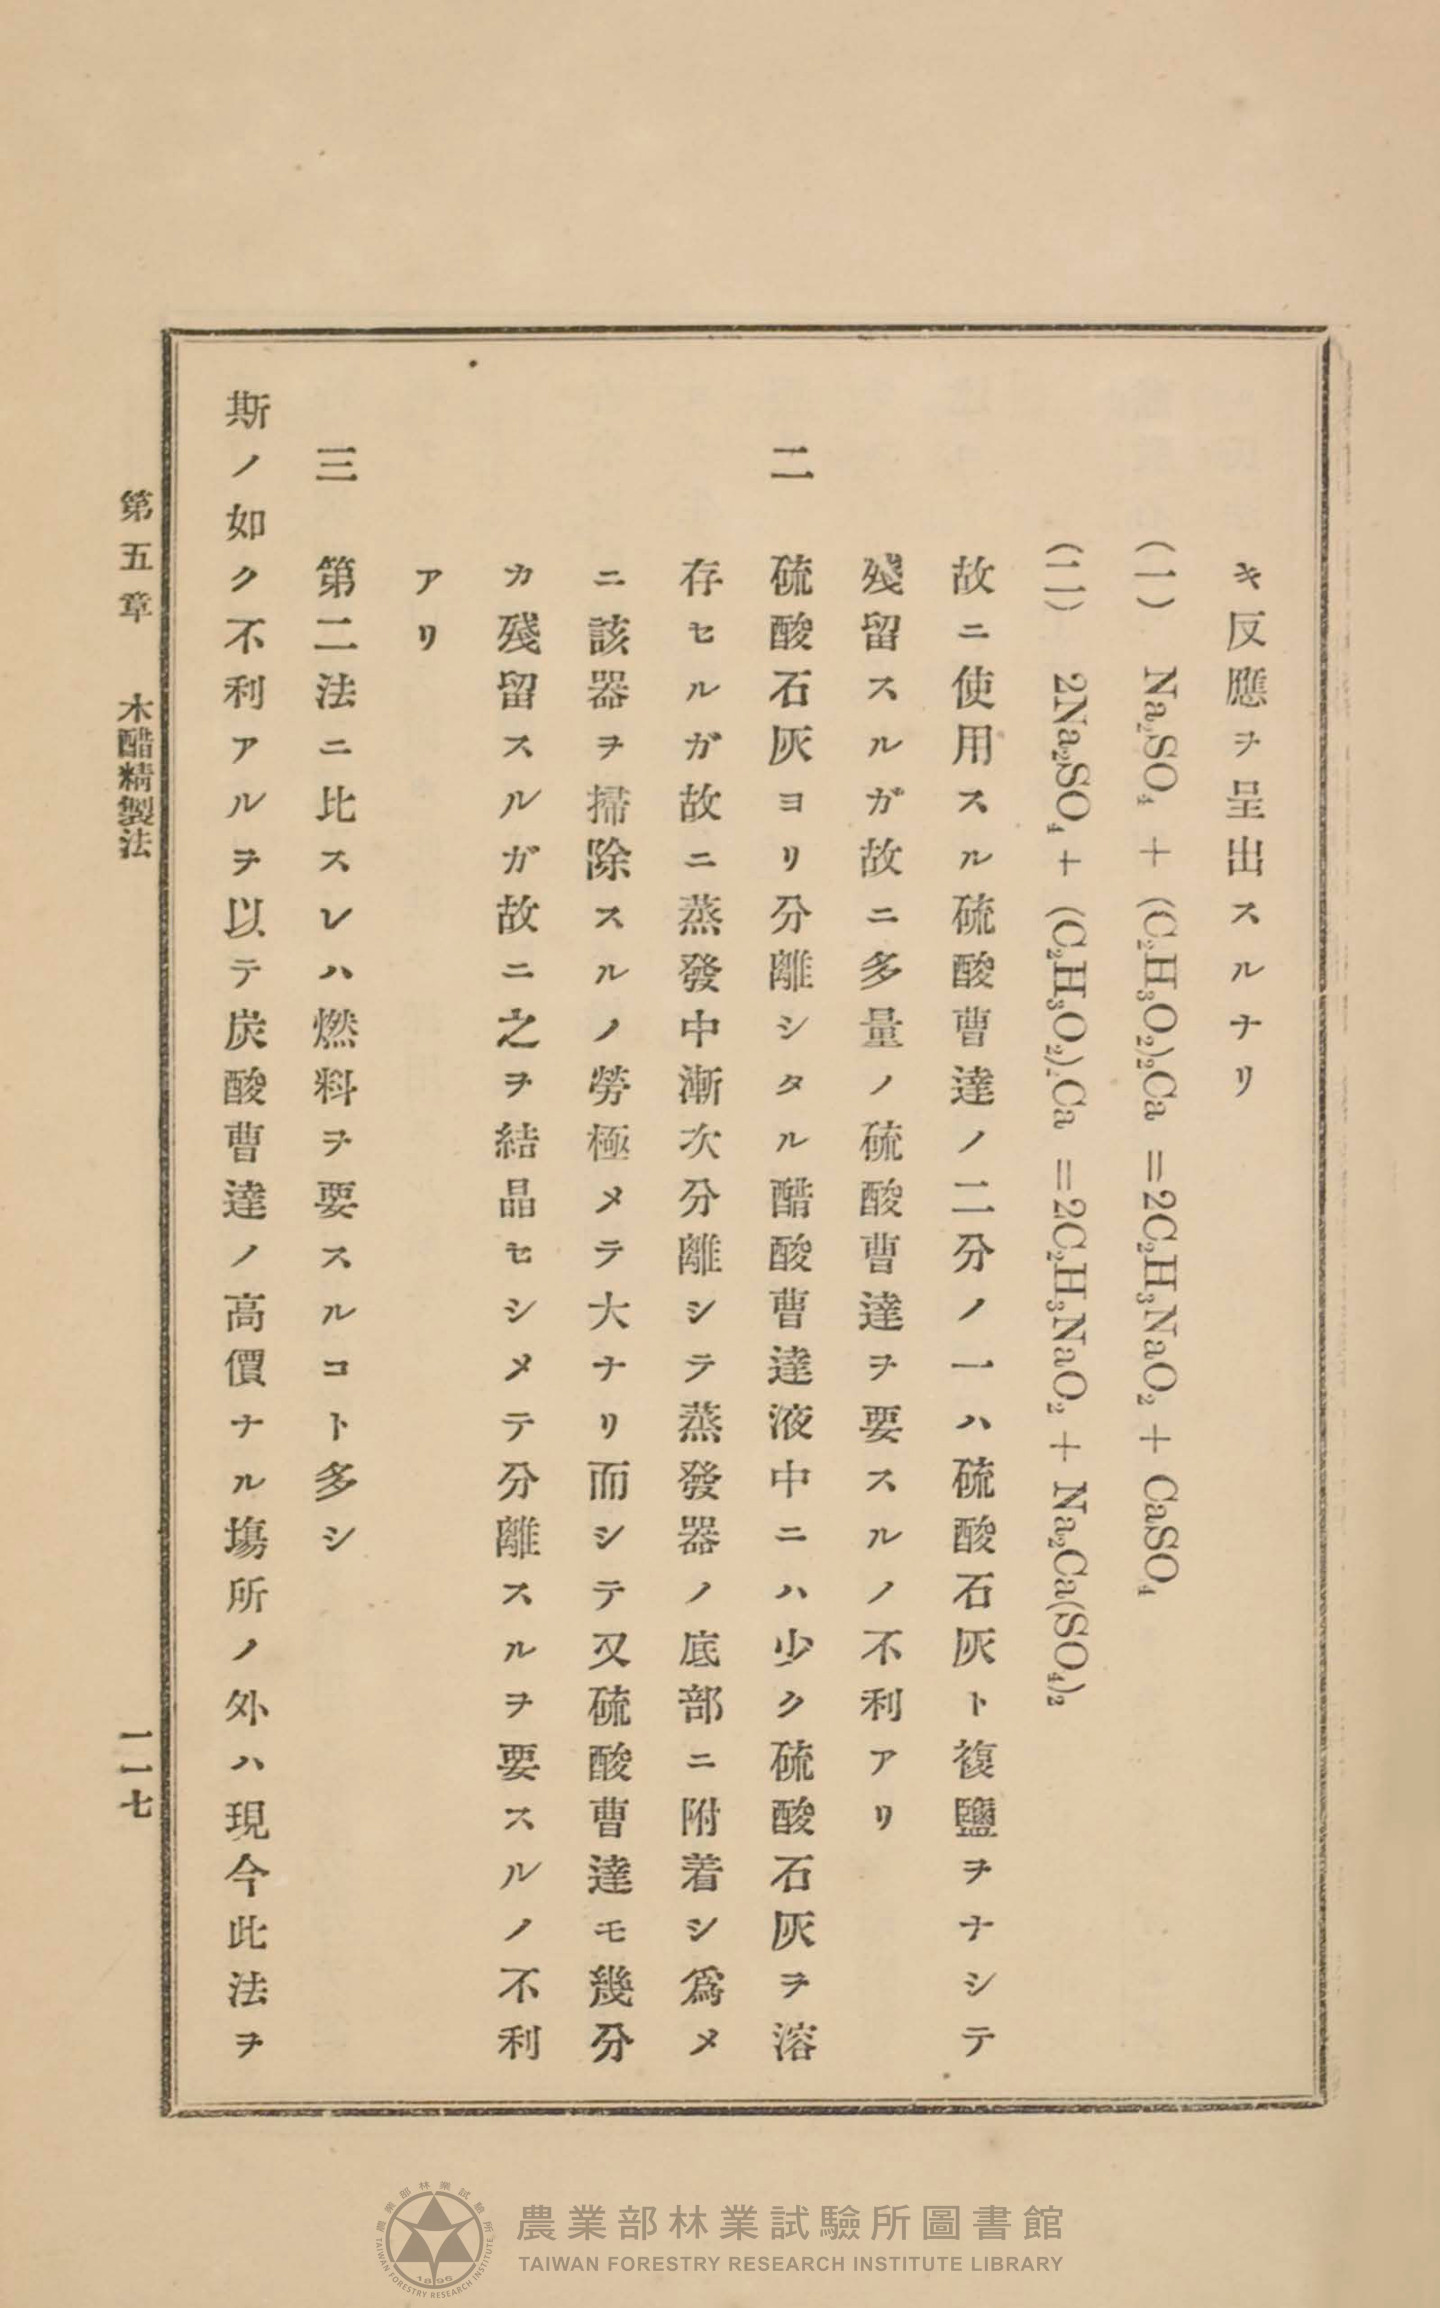 キ反應ヲ呈出スルナリ
(一) Na₂SO₄ + (C₂H₃O₂)₂Ca =2C₂H₃NaO₂ + CaSO₄
(二) 2Na₂SO₄ + (C₂H₃O₂)₂Ca =2C₂H₃NaO₂ + Na₂Ca(SO₄)₂
故ニ使用スル硫酸曹達ノ二分ノ一ハ硫酸石灰ト複鹽ヲナシテ
殘留スルガ故ニ多量ノ硫酸曹達ヲ要スルノ不利アリ
二 硫酸石灰ヨリ分離シタル醋酸曹達液中ニハ少ク硫酸石灰ヲ溶
存セルガ故ニ蒸發中漸次分離シテ蒸發器ノ底部ニ附着シ爲メ
ニ該器ヲ掃除スルノ勞極メテ大ナリ而シテ又硫酸曹達モ幾分
カ殘留スルガ故ニ之ヲ結晶セシメテ分離スルヲ要スルノ不利
アリ
三 第二法ニ比スレハ燃料ヲ要スルコト多シ
斯ノ如ク不利アルヲ以テ炭酸曹達ノ高價ナル塲所ノ外ハ現今此法ヲ
第五章 木醋精製法 一一七
農業部林業試驗所圖書館
TAIWAN FORESTRY RESEARCH INSTITUTE LIBRARY
農業部林業試驗所
TAIWAN FORESTRY RESEARCH INSTITUTE
1896